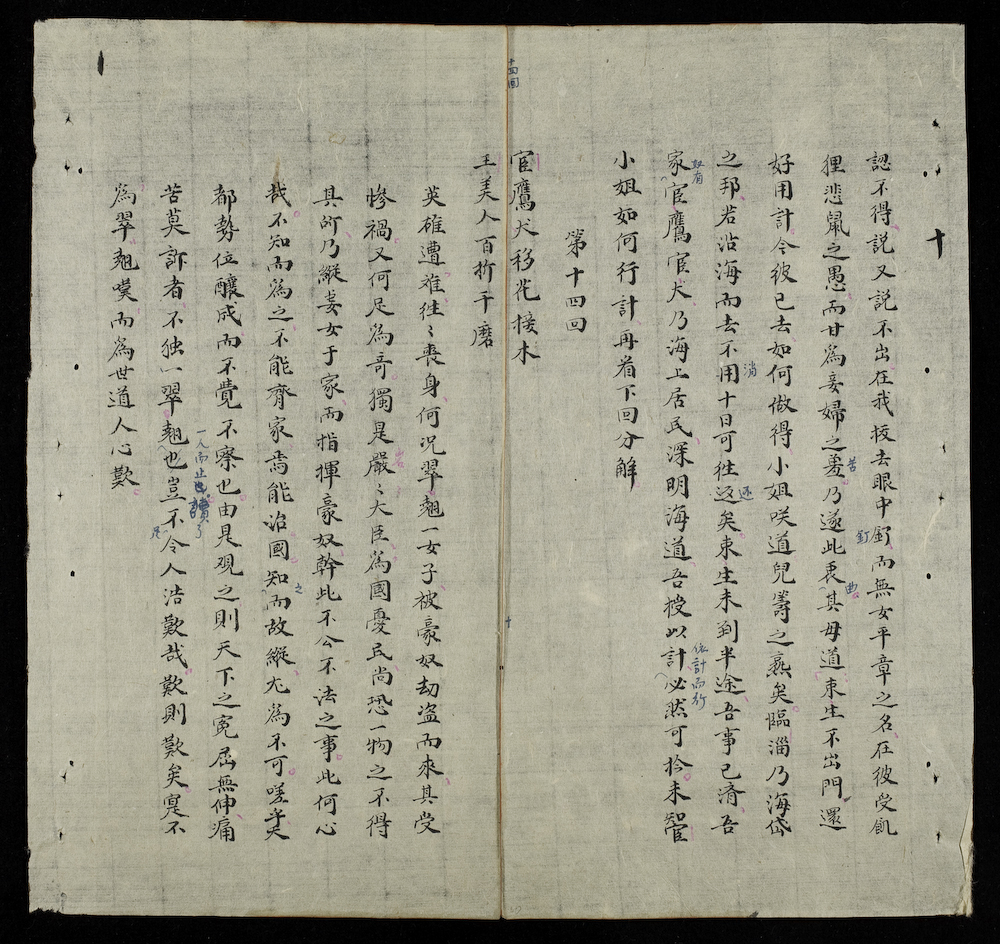 十
認不得説又説不出在我拔去眼中釘而無女平章之名在彼受飢
狸悲鼠之愚而甘為妾婦之羞乃遂此衷其母道束生不出門還
好用計令彼已去如何做得小姐咲道兒籌之熟矣臨淄乃海岱
之邦若沿海而去不用十日可往返矣束生未到半途吾事已濟吾
家宦鷹宦犬乃海上居民深明海道吾授以計必然可拾未知
小姐如何行計再看下回分觧
第十四回
宦鷹犬移花接木
王美人百折千磨
英雄遭难往〻喪身何況翠翹一女子被豪奴劫盗而來其受
惨禍又何足為哥獨是嚴〻大臣為國憂民尚恐一物之不得
其所乃縱妾女于家而指揮豪奴幹此不公不法之事此何心
哉不知而為之不能齊家焉能治國知而故縱尢為不可嗟乎大
都勢位釀成而不覺不察也由是观之則天下之寃屈無伸痛
苦莫訴者不独一翠翹也豈不令人浩歎哉歎則歎矣寔不
為翠翹嘆而為世道人心歎
十四回
苦
釘
曲
消
还
取有
依計而行
岩
之
一人而止也讀了
十